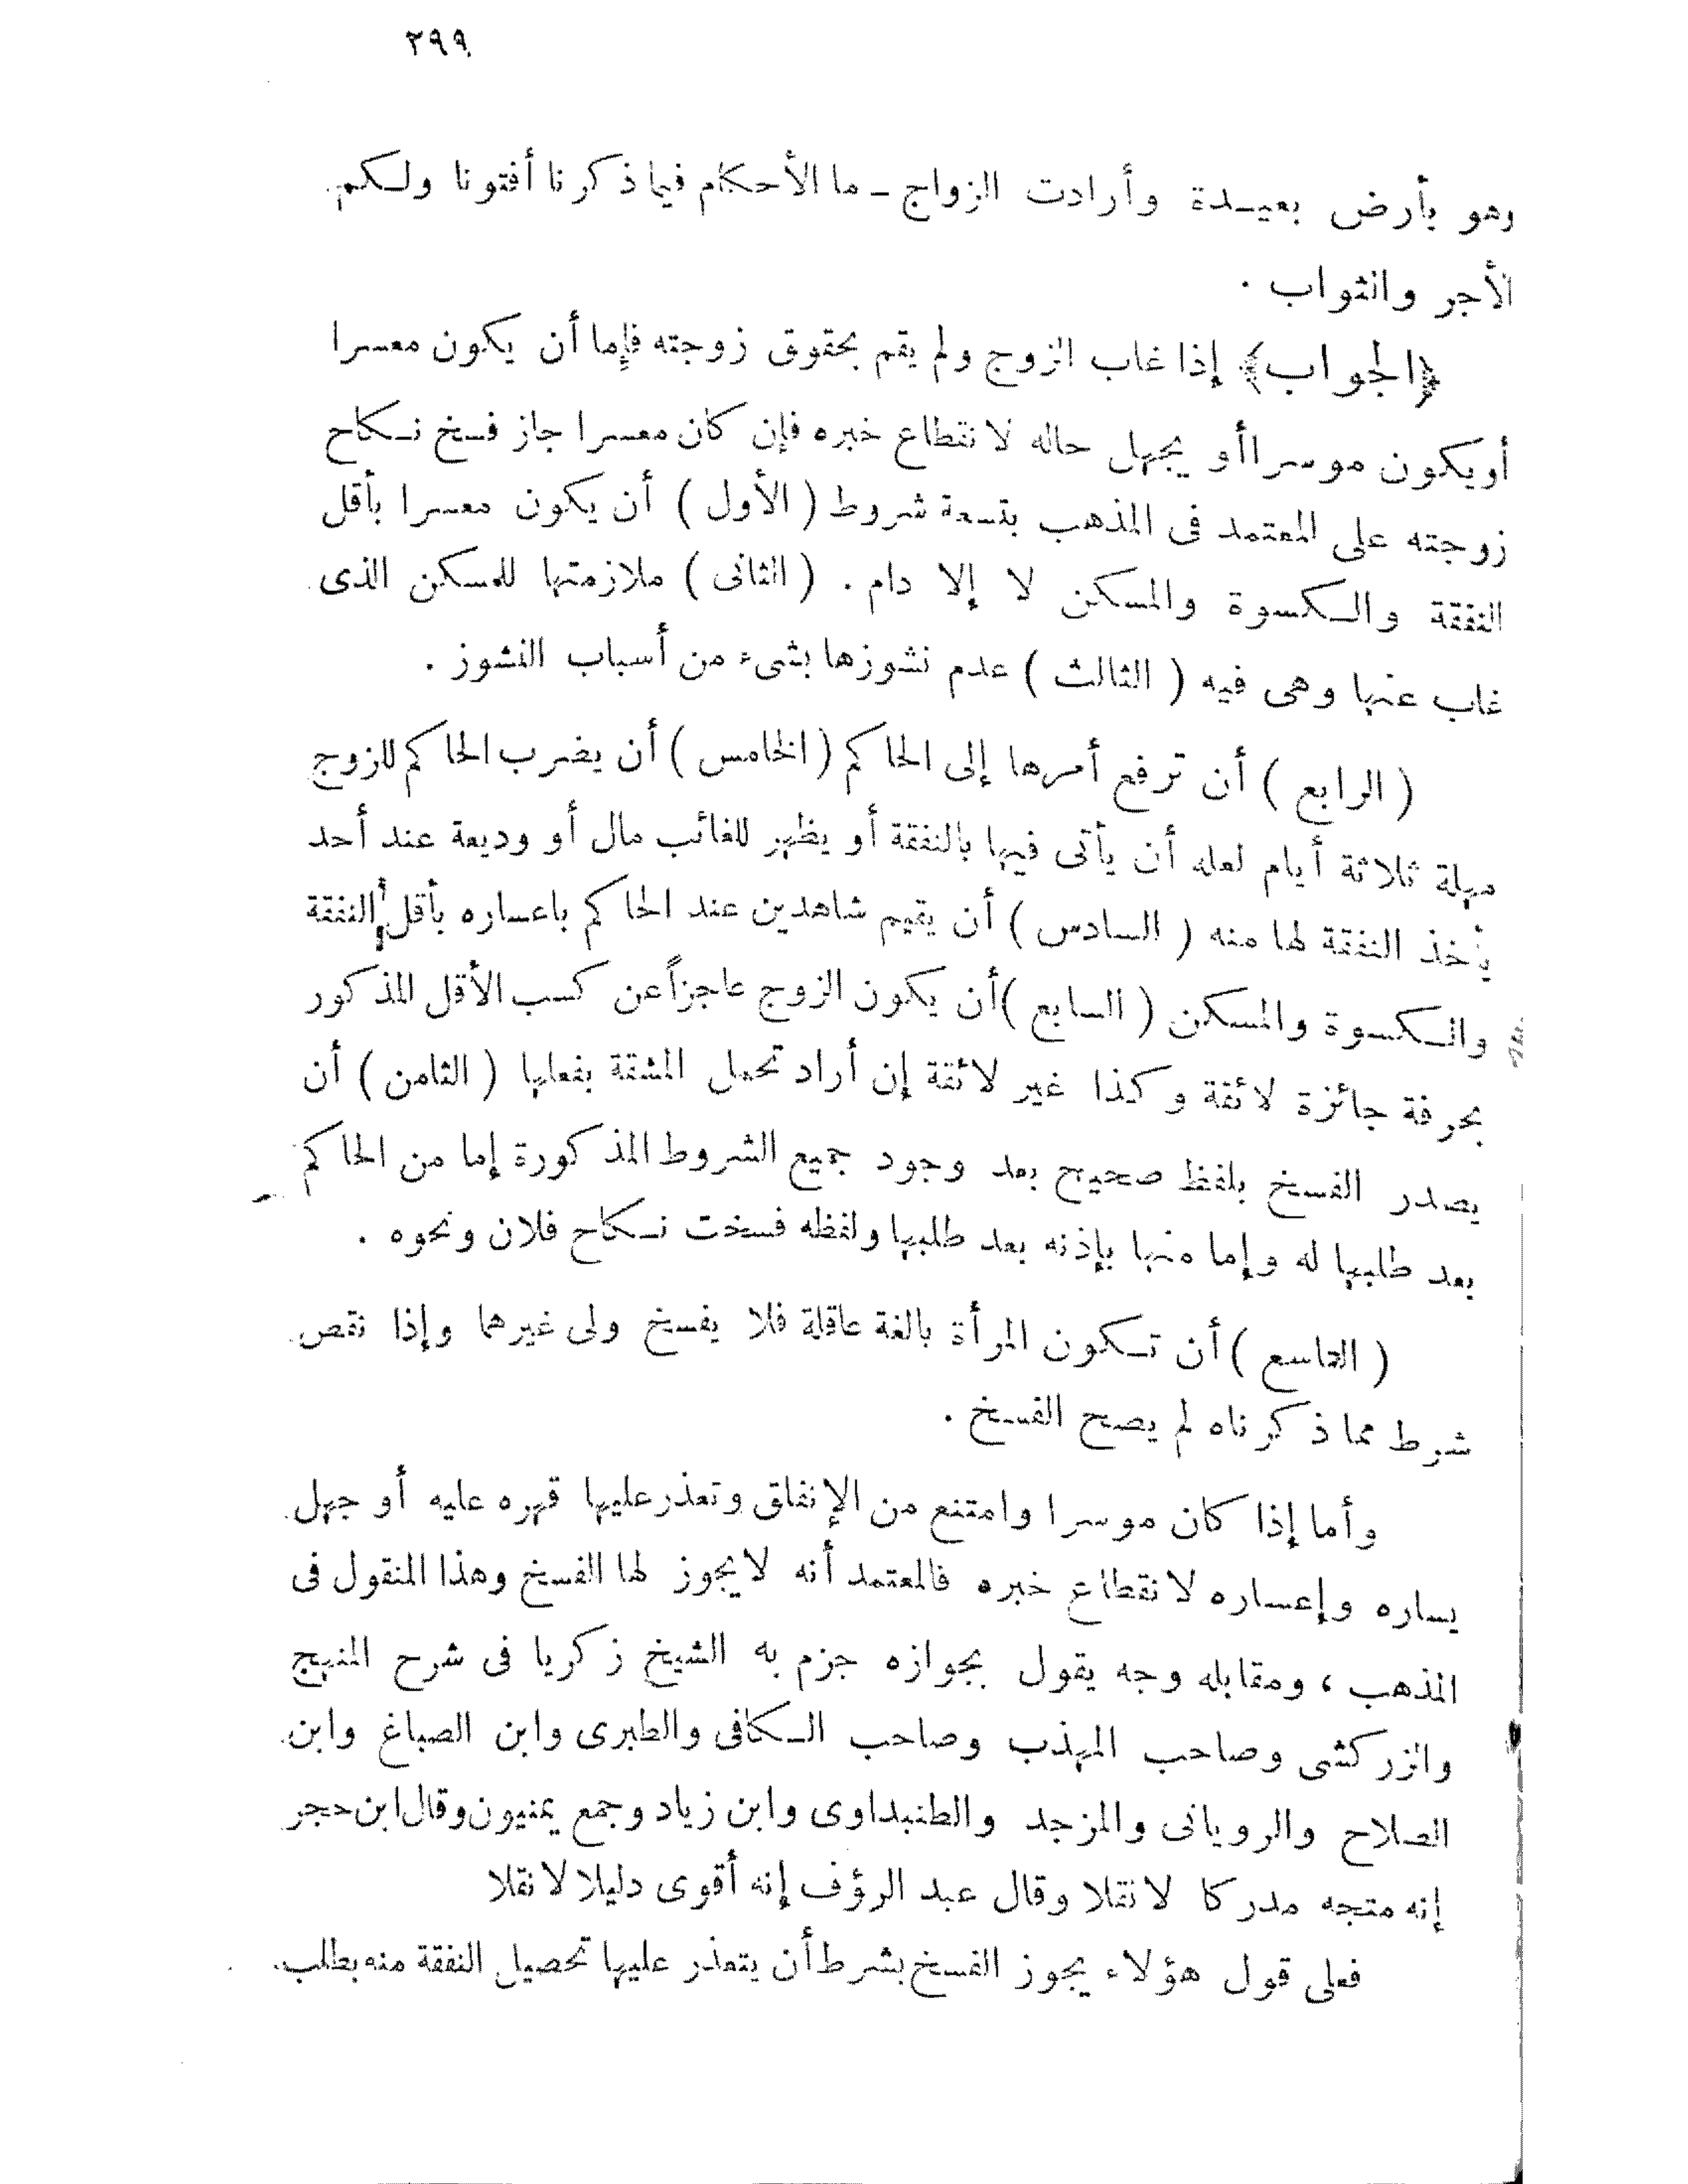 ٢٩٩
وهو بأرض بعيـدة وأرادت الزواج ـ ما الأحكام فيما ذكرنا أفتونا ولـكم
الأجر والثواب .
﴿الجواب﴾ إذا غاب الزوج ولم يقم بحقوق زوجته فإما أن يكون معسرا
أويكون موسرا أو يجهل حاله لانقطاع خبره فإن كان معسرا جاز فسخ نـكاح
زوجته على المعتمد فى المذهب بتسعة شروط ( الأول ) أن يكون معسرا بأقل
النفقة والـكسوة والمسكن لا إلا دام . ( الثانى ) ملازمتها للمسكن الذى
غاب عنها وهى فيه ( الثالث ) عدم نشوزها بشىء من أسباب النشوز .
( الرابع ) أن ترفع أمرها إلى الحاكم ( الخامس ) أن يضرب الحاكم للزوج
مهلة ثلاثة أيام لعله أن يأتى فيها بالنفقة أو يظهر للغائب مال أو وديعة عند أحد
يأخذ النفقة لها منه ( السادس ) أن يقيم شاهدين عند الحاكم باعساره بأقل النفقة
والـكسوة والمسكن ( السابع ) أن يكون الزوج عاجزاً عن كسب الأقل المذكور
بحرفة جائزة لائقة وكذا غير لائقة إن أراد تحمل المشقة بفعلها ( الثامن ) أن
يصدر الفسخ بلفظ صحيح بعد وجود جميع الشروط المذكورة إما من الحاكم
بعد طلبها له وإما منها بإذنه بعد طلبها ولفظه فسخت نـكاح فلان ونحوه .
( التاسع ) أن تـكون المرأة بالغة عاقلة فلا يفسخ ولى غيرهما وإذا نقص
شرط مما ذكرناه لم يصح الفسخ .
وأما إذا كان موسرا وامتنع من الإنفاق وتعذر عليها قهره عليه أو جهل
يساره وإعساره لانقطاع خبره فالمعتمد أنه لايجوز لها الفسخ وهذا المنقول فى
المذهب ، ومقابله وجه يقول بجوازه جزم به الشيخ زكريا فى شرح المنهج
والزركشى وصاحب المهذب وصاحب الـكافى والطبرى وابن الصباغ وابن
الصلاح والرويانى والمزجد والطنبداوى وابن زياد وجمع يمنيون وقال ابن حجر
إنه متجه مدركا لا نقلا وقال عبد الرؤف إنه أقوى دليلا لا نقلا
فعلى قول هؤلاء يجوز الفسخ بشرط أن يتعذر عليها تحصيل النفقة منه بطلب